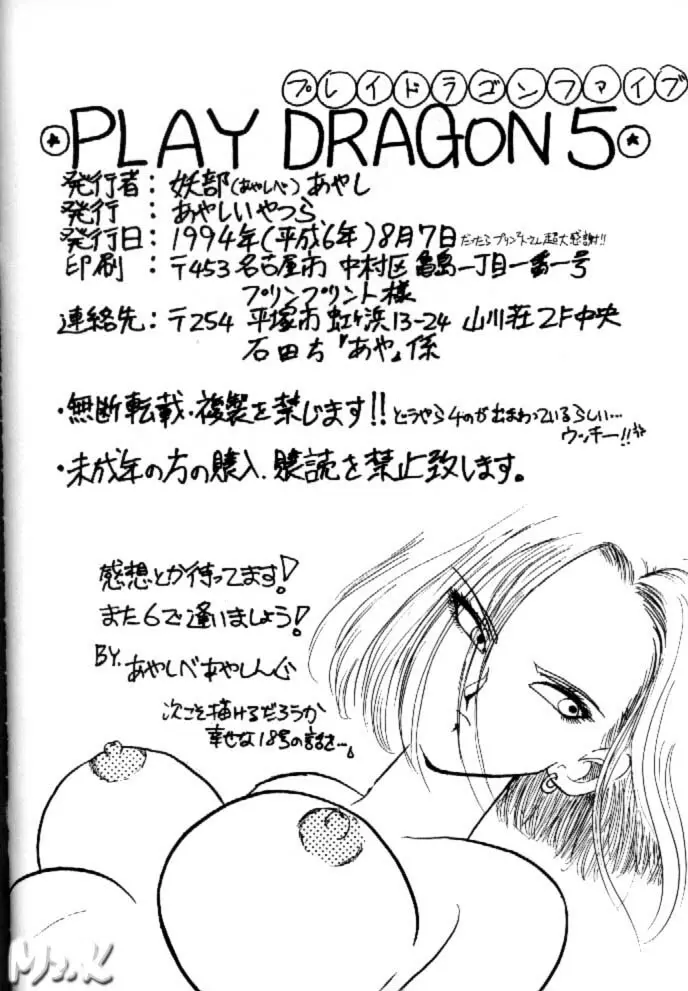 プレイドラゴンファイブ
PLAY DRAGON 5
発行者：妖部(あやしべ)あやし
発行：あやしいやつら
発行日：1994年(平成6年)8月7日 だったらプリンプリントさん超大感謝!!
印刷：〒453 名古屋市 中村区 亀島一丁目一番一号
プリンプリント様
連絡先：〒254 平塚市虹ヶ浜13-24 山川荘2F中央
石田方『あや』係
・無断転載・複製を禁じます!! どうやら4のが出まわっているらしい…
ウッキー!!
・未成年の方の購入、購読を禁止致します。
感想とか待ってます!
また6で逢いましょう!
BY. あやしべあやしん
次こそ描けるだろうか
幸せな18号の話を…。
Mr.K